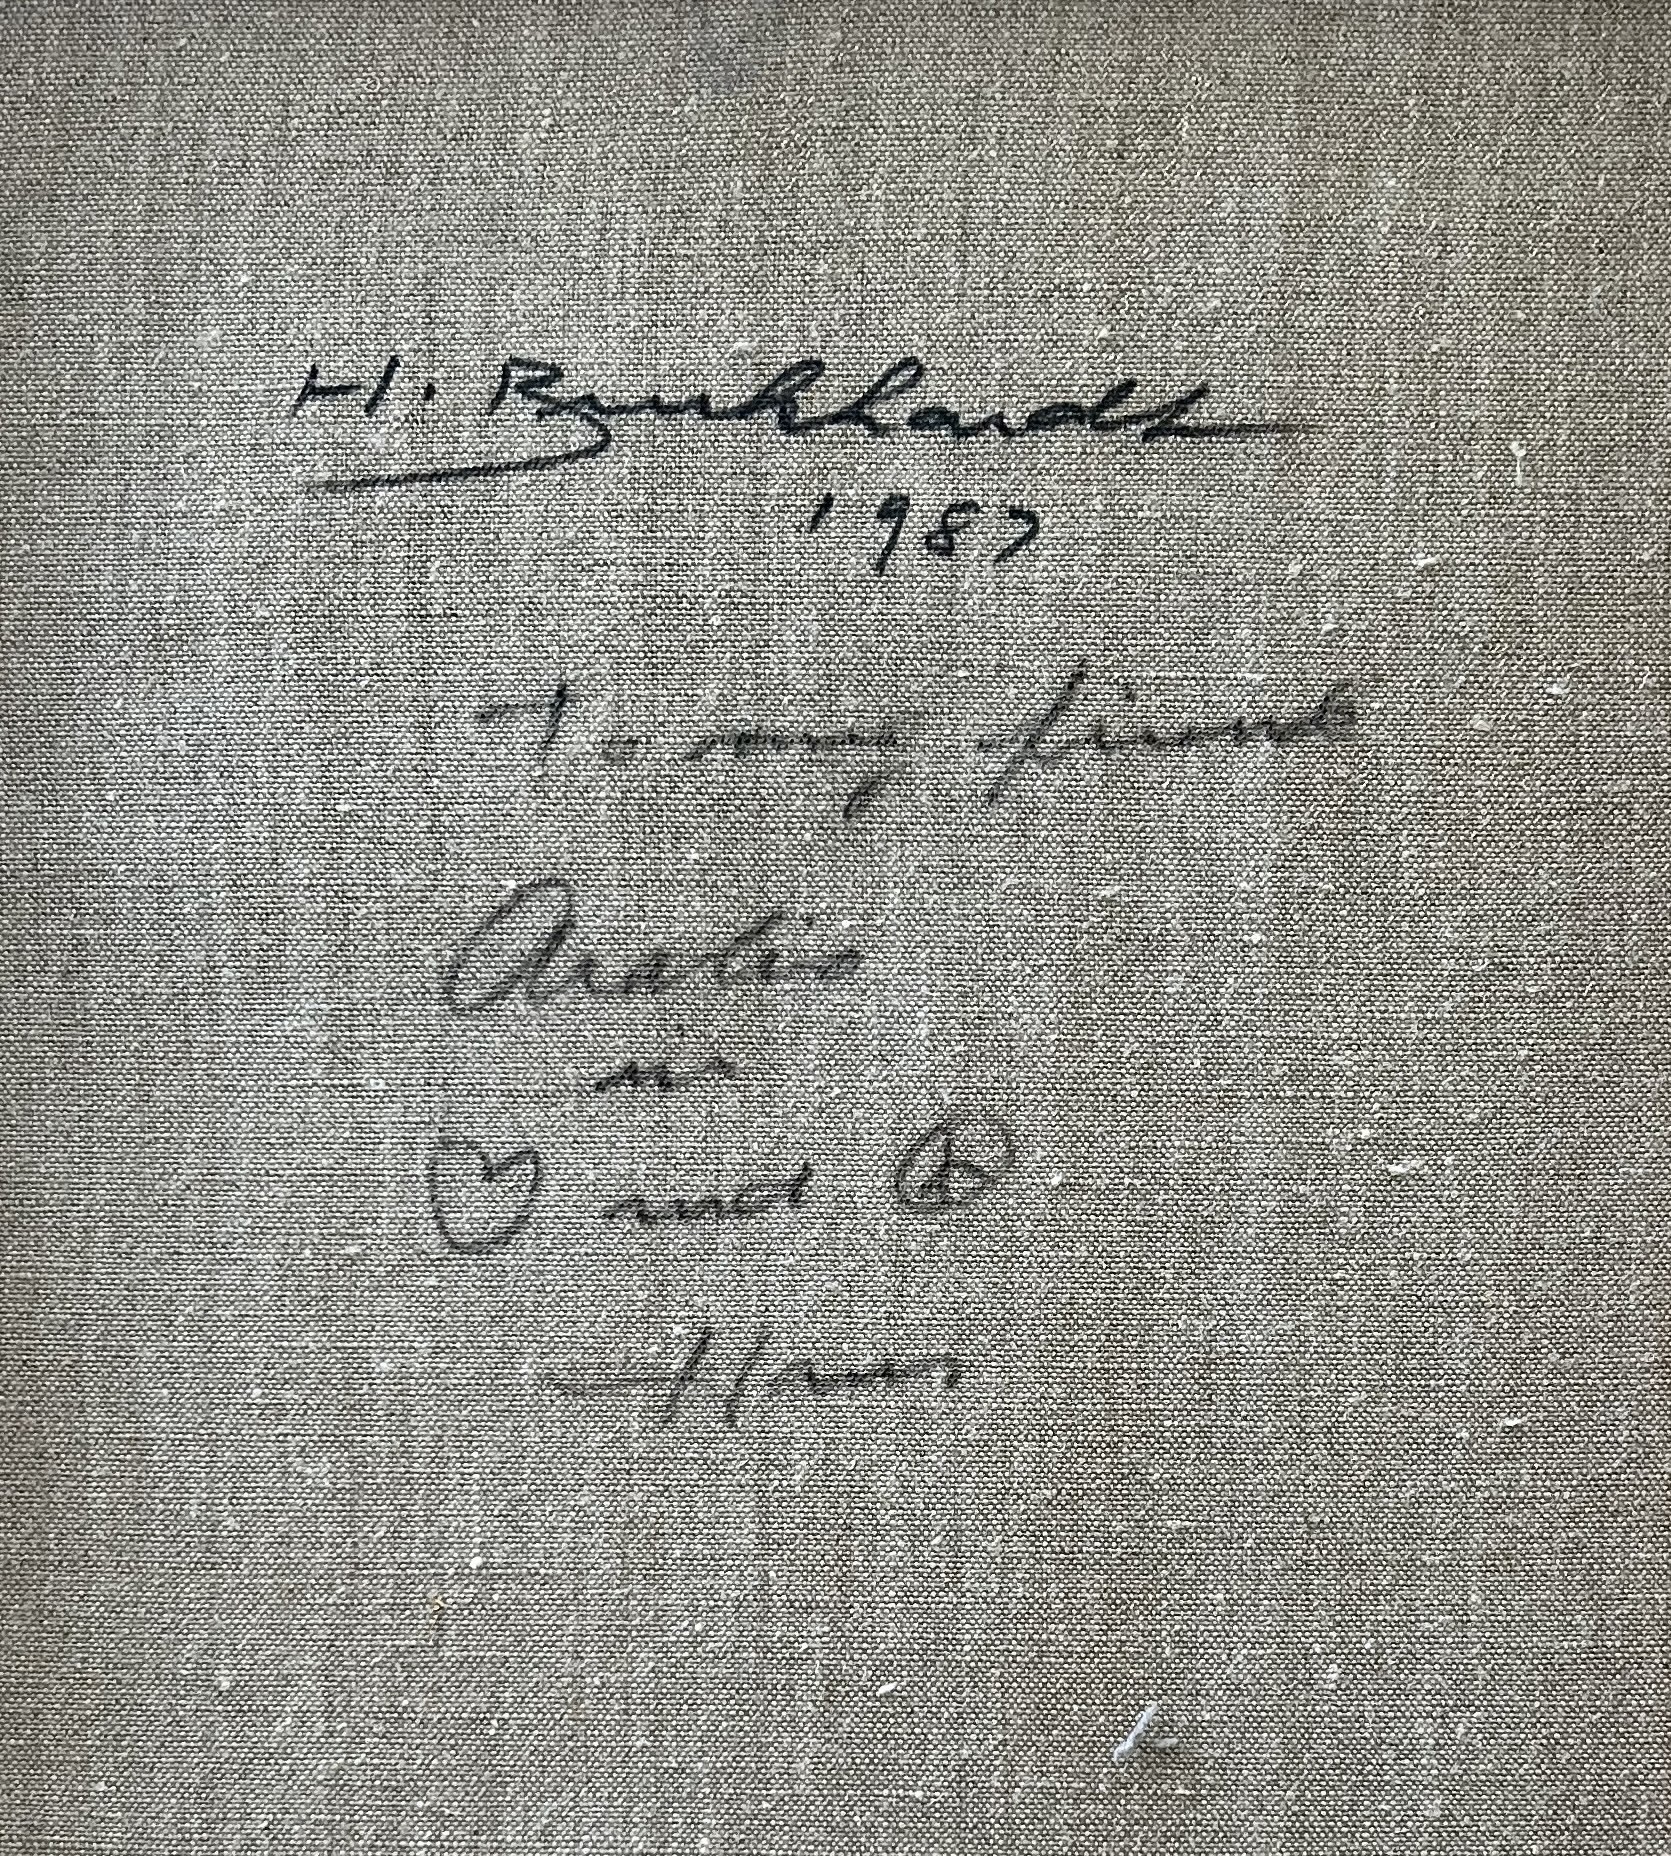 H. Burkhardt
1987
To my friend
in
and
Hans